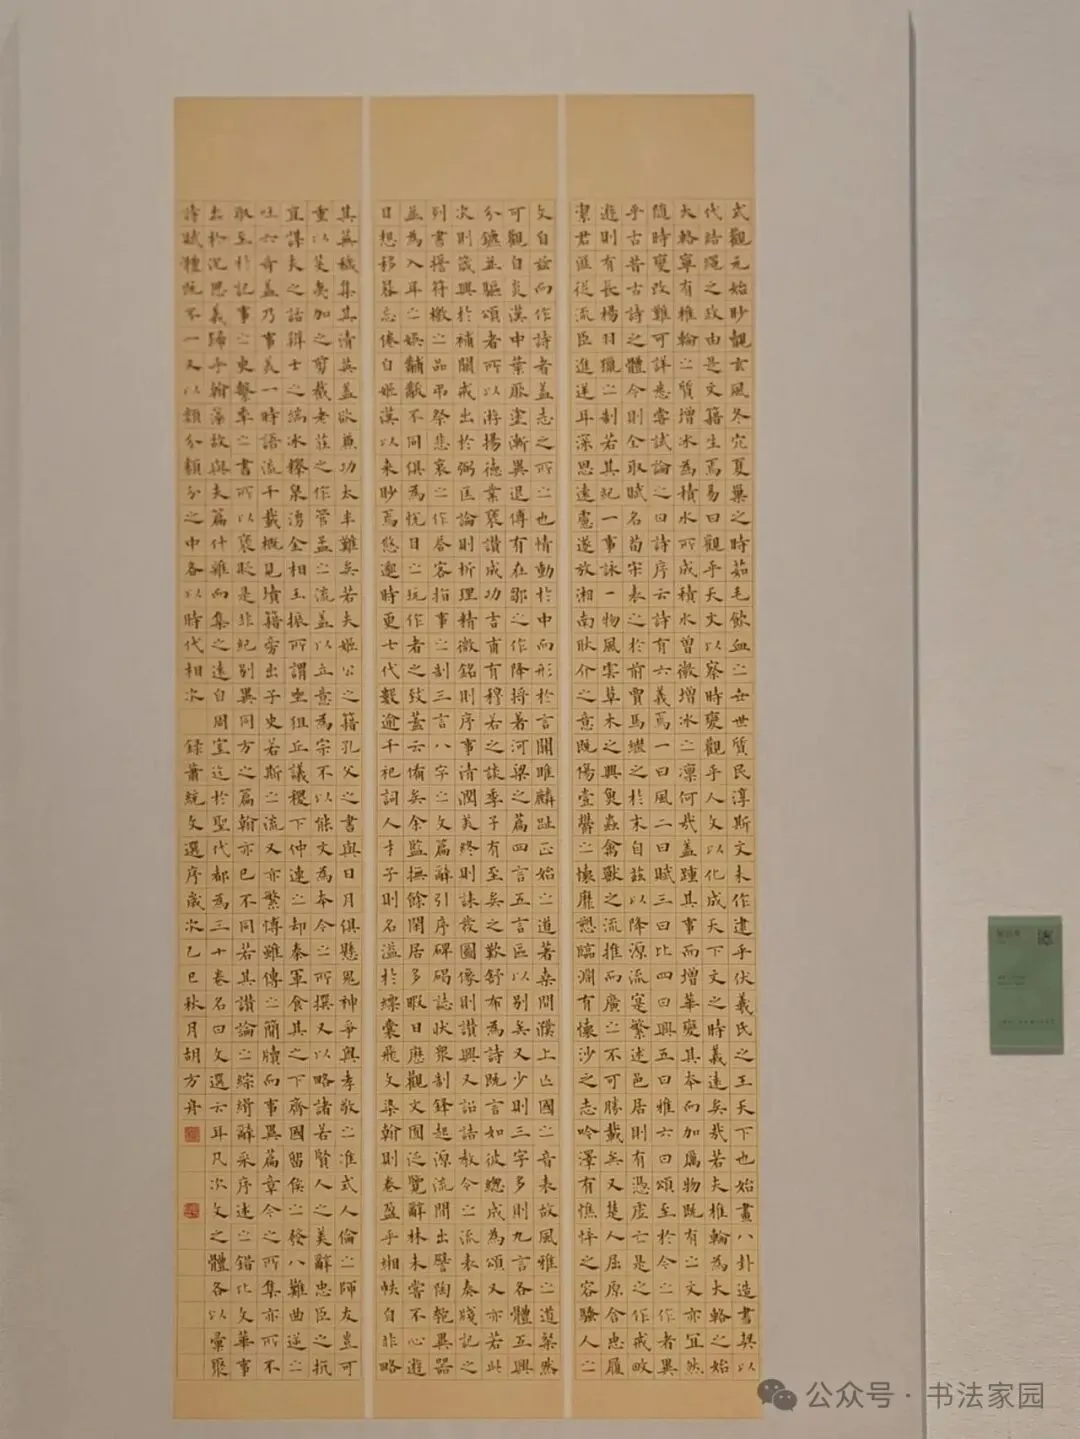 式觀元始眇覿玄風冬穴夏巢之時茹毛飲血之世世質民淳斯文未作逮乎伏羲氏之王天下也始畫八卦造書契以
代結繩之政由是文籍生焉易曰觀乎天文以察時變觀乎人文以化成天下文之時義遠矣哉若夫椎輪為大輅之始
大輅寧有椎輪之質增冰為積水所成積水曾微增冰之凜何哉蓋踵其事而增華變其本而加厲物既有之文亦宜然
隨時變改難可詳悉嘗試論之曰詩序云詩有六義焉一曰風二曰賦三曰比四曰興五曰雅六曰頌至於今之作者異
乎古昔古詩之體今則全取賦名荀宋表之於前賈馬繼之於末自茲以降源流寔繁述邑居則有憑虛亡是之作戒畋
遊則有長楊羽獵之制若其紀一事詠一物風雲草木之興魚蟲禽獸之流推而廣之不可勝載矣又楚人屈原含忠履
潔君匪從流臣進逆耳深思遠慮遂放湘南耿介之意既傷壹鬱之懷靡愬臨淵有懷沙之志吟澤有憔悴之容騷人之
文自茲而作詩者蓋志之所之也情動於中而形於言關雎麟趾正始之道著桑間濮上亡國之音表故風雅之道粲然
可觀自炎漢中葉厥塗漸異退傅有在鄒之作降將著河梁之篇四言五言區以別矣又少則三字多則九言各體互興
分鑣並驅頌者所以游揚德業褒讚成功吉甫有穆若之談季子有至矣之歎舒布為詩既言如彼總成為頌又亦若此
次則箴興於補闕戒出於弼匡論則析理精微銘則序事清潤美終則誄發圖像則讚興又詔誥教令之流表奏牋記之
列書誓符檄之品弔祭悲哀之作答客指事之制三言八字之文篇辭引序碑碣誌狀眾制鋒起源流間出譬陶匏異器
並為入耳之娛黼黻不同俱為悅目之玩作者之致蓋云備矣余監撫餘閑居多暇日歷觀文囿泛覽辭林未嘗不心遊
目想移晷忘倦自姬漢以來眇焉悠邈時更七代數逾千祀詞人才子則名溢於縹囊飛文染翰則卷盈乎緗帙自非略
其蕪穢集其清英蓋欲兼功太半難矣若夫姬公之籍孔父之書與日月俱懸鬼神爭奧孝敬之准式人倫之師友豈可
重以芟夷加之剪截老莊之作管孟之流蓋以立意為宗不以能文為本今之所撰又以略諸若賢人之美辭忠臣之抗
直謀夫之話辨士之端冰釋泉湧金相玉振所謂坐狙丘議稷下仲連之却秦軍食其之下齊國留侯之發八難曲逆之
吐六奇蓋乃事美一時語流千載概見墳籍旁出子史若斯之流又亦繁博雖傳之簡牘而事異篇章今之所集亦所不
取至於記事之史繫年之書所以褒貶是非紀別異同方之篇翰亦已不同若其讚論之綜緝辭采序述之錯比文華事
出於沉思義歸乎翰藻故與夫篇什雜而集之遠自周室迄於聖代都為三十卷名曰文選云耳凡次文之體各以彙聚
詩賦體既不一又以類分類分之中各以時代相次 錄蕭統文選序歲次乙巳秋月胡方舟
公众号·书法家园